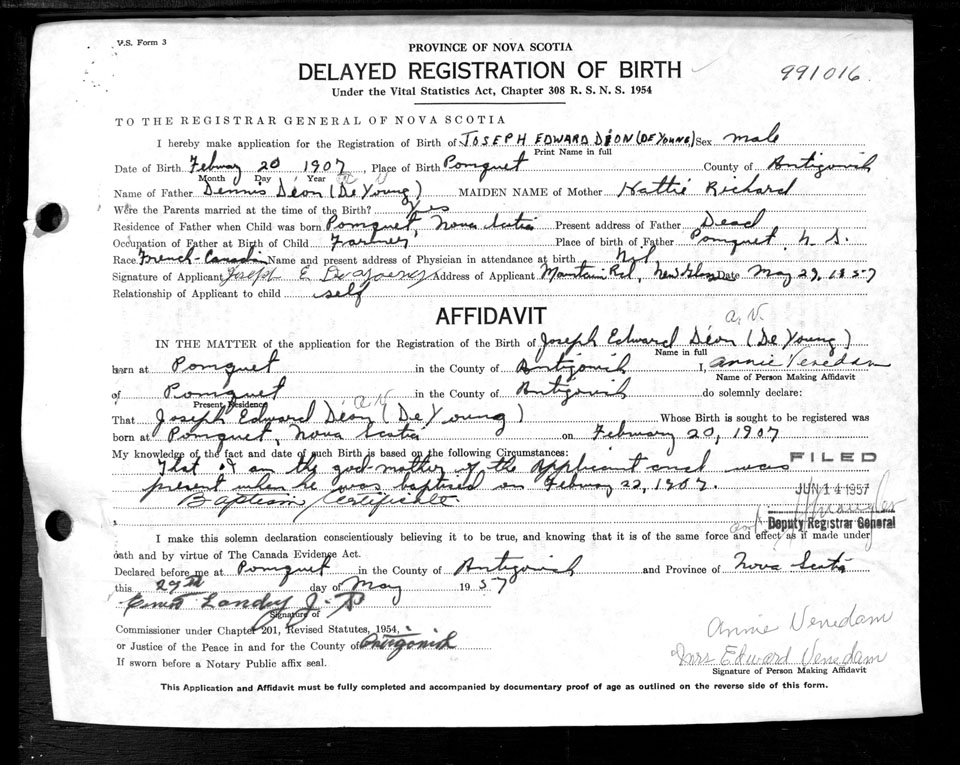 V.S. Form 3
PROVINCE OF NOVA SCOTIA
DELAYED REGISTRATION OF BIRTH
991016
Under the Vital Statistics Act, Chapter 308 R. S. N. S. 1954
TO THE REGISTRAR GENERAL OF NOVA SCOTIA
I hereby make application for the Registration of Birth of JOSEPH EDWARD DÉON (DE YOUNG) Sex male
Print Name in full
Date of Birth Februay 20 1907, Place of Birth Pomquet County of Antigonish
Month Day Year
Name of Father Dennis Déon (De Young) MAIDEN NAME of Mother Hattie Richard
Were the Parents married at the time of the Birth? Yes
Residence of Father when Child was born Pomquet, Nova Scotia Present address of Father Dead
Occupation of Father at Birth of Child Farmer Place of birth of Father Pomquet, N. S.
Race French-Canadian Name and present address of Physician in attendance at birth Nil
Signature of Applicant Joseph E DeYoung Address of Applicant Mountain Rd, New Glas Date May 29, 1957
Relationship of Applicant to child self
AFFIDAVIT
A.V.
IN THE MATTER of the application for the Registration of the Birth of Joseph Edward Déon (De Young)
Name in full
born at Pomquet in the County of Antigonish I, Annie Venedam
Name of Person Making Affidavit
of Pomquet in the County of Antigonish do solemnly declare:
Present Residence A.V.
That Joseph Edward Déon (De Young) Whose Birth is sought to be registered was
born at Pomquet, Nova Scotia on February 20, 1907
My knowledge of the fact and date of such Birth is based on the following Circumstances:
That I am the god-mother of the applicant and was
present when he was baptised on Februay 22, 1907.
Baptism Certificate
FILED
JUN 14 1957
Deputy Registrar General
I make this solemn declaration conscientiously believing it to be true, and knowing that it is of the same force and effect as if made under
oath and by virtue of The Canada Evidence Act.
Declared before me at Pomquet in the County of Antigonish and Province of Nova Scotia
this 29th day of May 1957
Ernest Landry J. P.
Signature of
Commissioner under Chapter 201, Revised Statutes, 1954,
or Justice of the Peace in and for the County of Antigonish
If sworn before a Notary Public affix seal.
Annie Venedam
Mrs Edward Venedam
Signature of Person Making Affidavit
This Application and Affidavit must be fully completed and accompanied by documentary proof of age as outlined on the reverse side of this form.